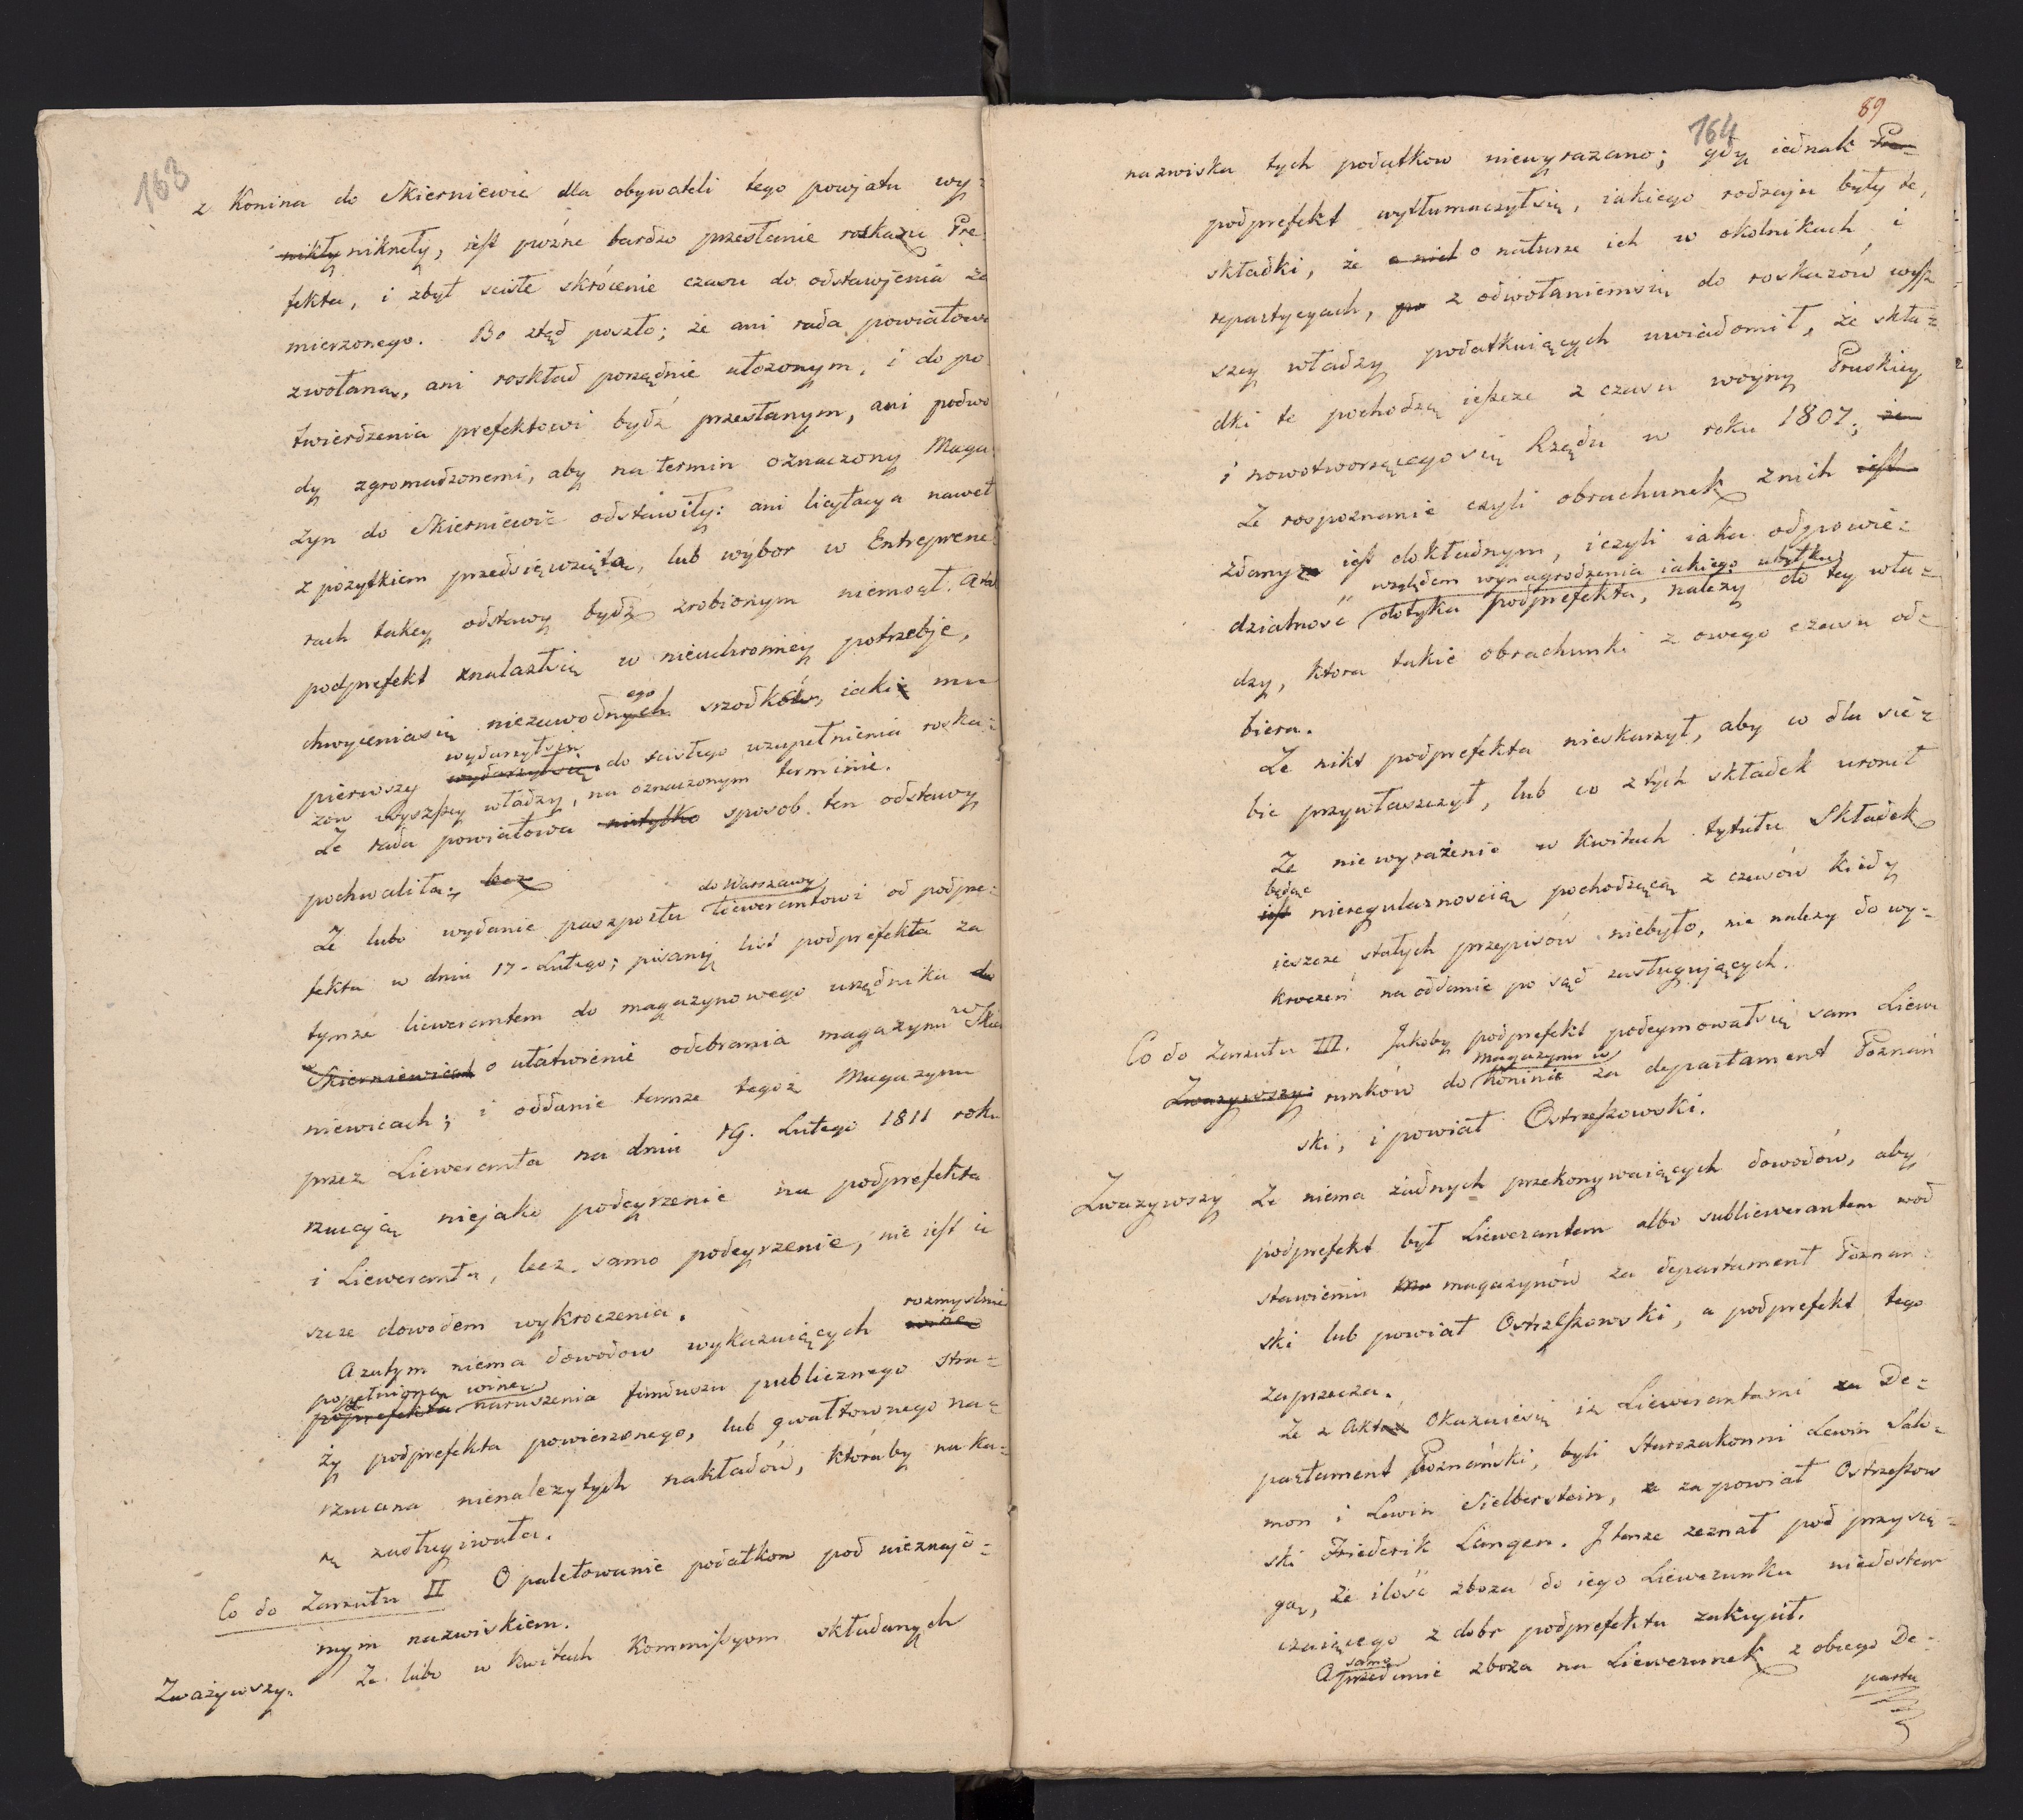 163
z Konina do Skierniewic dla obywateli tego powjatu wy-
nikły niknęły, iest pożne bardzo przesłanie roskazu Pre
fekta, i zbyt ścisłe skrócenie czasu do odstawjenia za
mierzonego. Bo ztąd poszło; że ani rada powiatowa
zwołana, ani roskład porządnie ułozonym, i do po
twierdzenia prefektowi bydź przesłanym, ani podwo
dy zgromadzonemi, aby na termin oznaczony Maga
zyn do Skierniewic odstawiły: ani licytacya nawet
z pożytkiem przedsięwzięta, lub wybor w Entreprene
rach takey odstawy bydź zrobionym niemogł. A tak
podprefekt znalazłsię w nieuchronney potrzebje,
ego
chwyceniasię niezawodnych srzodków, iaki mu
wydarzyłsię
pierwszy wydarzyłsię do scisłego uzupełnienia roska-
zow wyszszey władzy, na oznaczonym terminie.
Ze rada powiatowa nietylko sposob ten odstawy
pochwaliła; lecz
do Warszawy
Ze lubo wydanie paszportu liewerantowi od podpre-
fekta w dniu 17 - Lutego; pisany list podprefekta za
tymże liewerantem do magazynowego urzędnika do
Skierniewicach o ułatwienie odebrania magazynu w Skier
niewicach; i oddanie tamze tegoż Magazynu
przez Liewerenta na dniu 19. Lutego 1811 roku
rzucają niejako podeyrzenie na podprefekta
i Liewerenta, lecz samo podeyrzenie, nie iest ie
szcze dowodem wykroczenia.
rozmyslnie
A zatym niema dowodow wykazuiących winę
popełnioną winę
podprefekta naruszenia funduszu publicznego stra-
ży podprefekta powierzonego, lub gwałtownego na-
rzucana nienalezytych nakładów, któraby na ka-
rę zasługiwała.
Co do Zarzutu II O paletowanie podatkow pod nieznajo-
mym nazwiskiem.
Zważywszy. Ze lubo w kwitach Kommissyom składanych
89
164
nazwiska tych podatkow niewyrazano; gdy iednak Pre-
podprefekt wytłumaczyłsię, iakiego rodzaju były te,
składki, że o nich o naturze ich w okolnikach i
repartycyach, po z odwołaniemsię do roskazów wysz
szey władzy podatkuiących uwiadomił, że skła-
dki te pochodzą ieszcze z czasu woyny Pruskiey
i nowotworzącegosię Rządu w roku 1807; że
Ze rospoznanie czyli obrachunek z nich iest
zdany iest dokładnym, i czyli iaka odpowie-
względem wynagrodzenia iakiego ubytku
dzialność dotyka podprefekta, nalezy do tey wła-
dzy, ktora takie obrachunki z owego czasu od-
biera.
Ze nikt podprefekta nieskarzył, aby co dla sie-
bie przywłaszczył, lub co z tych składek uronił
Ze niewyrażenie w kwitach tytułu Składek
będąc
iest nieregularnoscią pochodzącą z czasów kiedy
ieszcze stałych przepisów niebyło, nie nalezy do wy-
kroczeń na oddanie po sąd zasługujących.
Co do Zarzutu III. Jakoby podprefekt podeymowałsię sam Liewe
magazynu w
Zwazywszy: runków do Koninie za departament Poznań
ski, i powiat Ostrzeszowski.
Zwazywszy Ze niema żadnych przekonywaiących dowodów, aby
podprefekt był Liewerantem albo subliewerantem wod
stawieniu ma magazynów za departament Poznan-
ski lub powiat Ostrzeszowski, a podprefekt tego
zaprzecza.
Ze z Aktów Okazuiesię iż Liewerantami za De-
partament Poznański, byli Starozakonni Lewin Salo-
mon i Lewin Sielberstein, a za powiat Ostrzeszow
ski Friederik Langen. I tenze zeznał pod przysię-
gą, że ilość zboza do iego Liewerunku niedostar
czaiącego z dobr podprefekta zakupił.
samo
A przedanie zboża na Liewerunek z obcego De-
parta